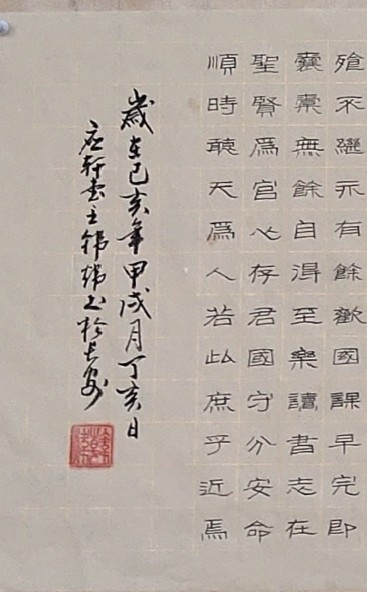 飱不繼亦有餘歡國課早完即
囊橐無餘自得至樂讀書志在
聖賢爲官心存君國守分安命
順時聽天爲人若此庶乎近焉
歲在己亥年甲戌月丁亥日
轩主书於长安